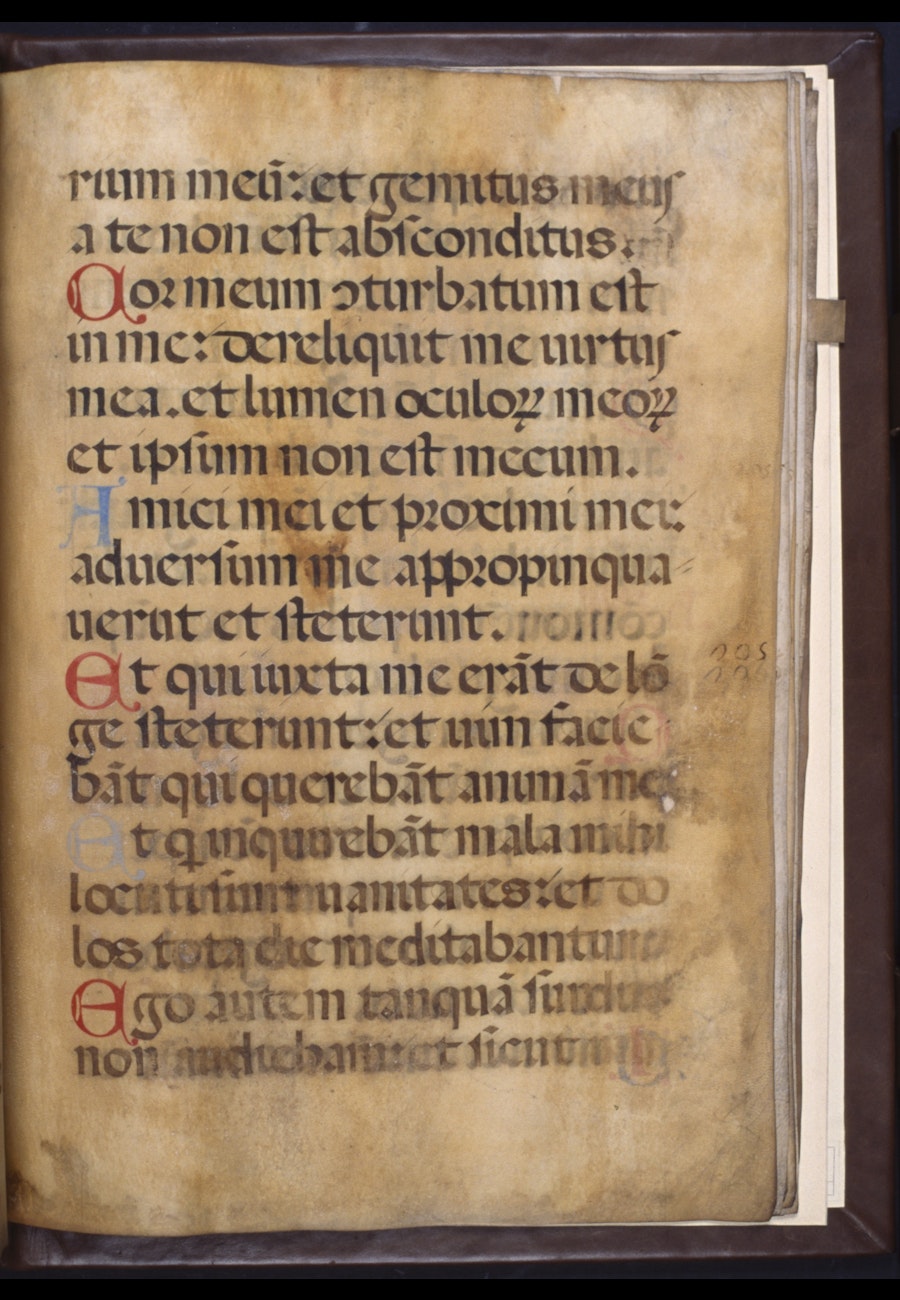 rium meū: et gemitus meus
a te non est absconditus.
Cor meum ɔturbatum est
in me: dereliquit me uirtus
mea. et lumen oculoꝝ meoꝝ
et ipsum non est mecum.
Amici mei et proximi mei:
aduersum me appropinqua-
uerūt et steterunt.
Et qui iuxta me erāt de lō
ge steterunt: et uim facie
bāt qui querebāt animā meā
Et q̇ inquirebāt mala mihi
locuti sunt uanitates: et do
los tota die meditabantur
Ego autem tanquā surdus
non audiebam: et sicut